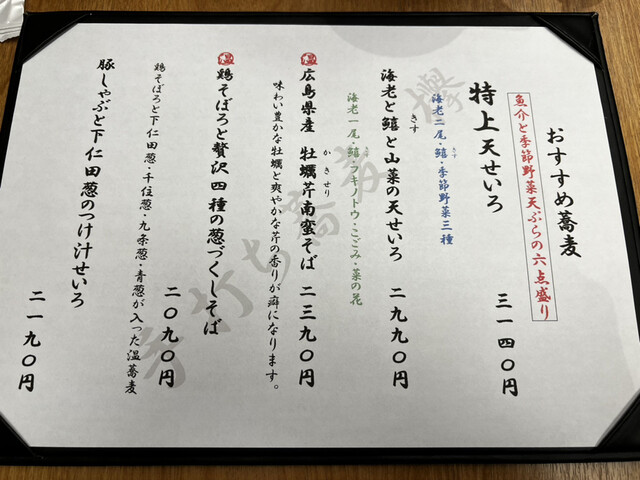 おすすめ蕎麦
魚介と季節野菜天ぷらの六点盛り
特上天せいろ 三一四〇円
海老二尾・鱚・季節野菜三種
きす
海老と鱚と山菜の天せいろ 二九九〇円
きす
海老一尾・鱚・フキノトウ・こごみ・菜の花
きす
温 広島県産 牡蠣芹南蛮そば 二三九〇円
かきせり
味わい豊かな牡蠣と爽やかな芹の香りが癖になります。
温 鶏そぼろと贅沢四種の葱づくしそば 二〇九〇円
鶏そぼろと下仁田葱・千住葱・九条葱・青葱が入った温蕎麦
豚しゃぶと下仁田葱のつけ汁せいろ 二一九〇円
手打ち蕎麦 欅